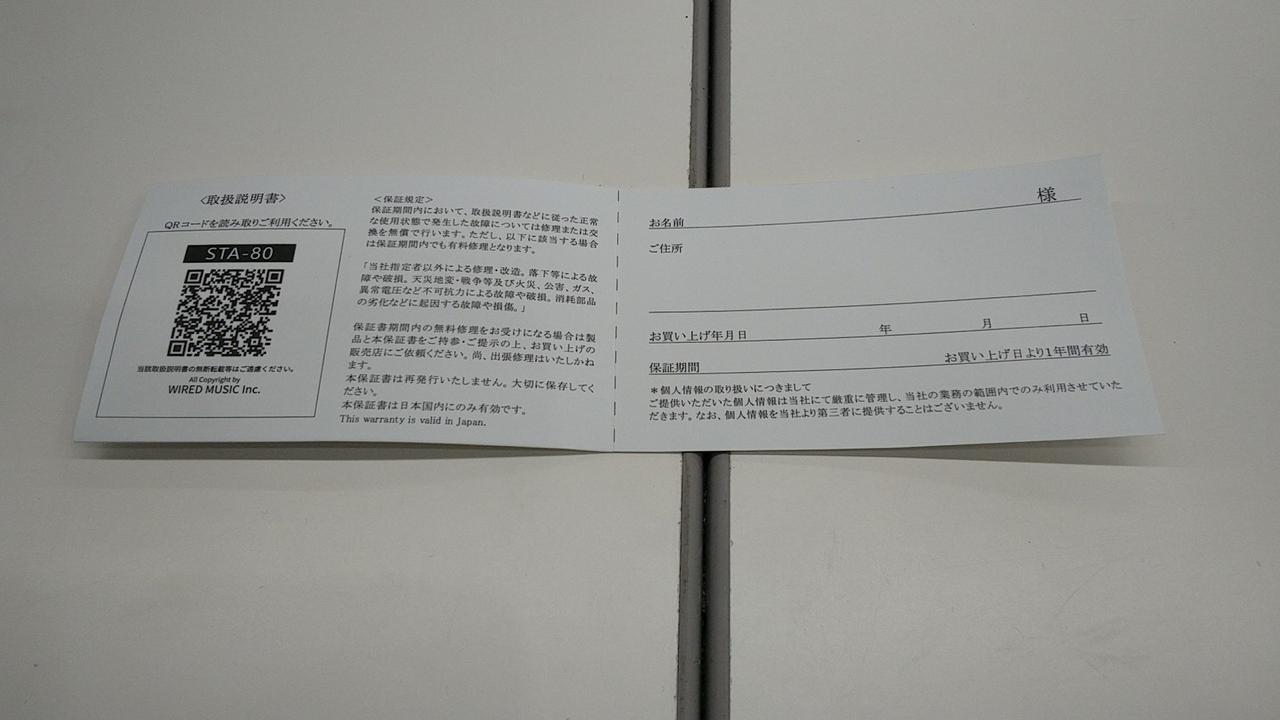 〈取扱説明書〉
QRコードを読み取りご利用ください。
STA-80
当該取扱説明書の無断転載等はご遠慮ください。
All Copyright by
WIRED MUSIC Inc.
<保証規定>
保証期間内において、取扱説明書などに従った正常
な使用状態で発生した故障については修理または交
換を無償で行います。ただし、以下に該当する場合
は保証期間内でも有料修理となります。
「当社指定者以外による修理・改造。落下等による故
障や破損。天災地変・戦争等及び火災、公害、ガス、
異常電圧など不可抗力による故障や破損。消耗部品
の劣化などに起因する故障や損傷。」
保証書期間内の無料修理をお受けになる場合は製
品と本保証書をご持参・ご提示の上、お買い上げの
販売店にご依頼ください。尚、出張修理はいたしかね
ます。
本保証書は再発行いたしません。大切に保存してく
ださい。
本保証書は日本国内にのみ有効です。
This warranty is valid in Japan.
お名前 様
ご住所
お買い上げ年月日 年 月 日
保証期間 お買い上げ日より1年間有効
＊個人情報の取り扱いにつきまして
ご提供いただいた個人情報は当社にて厳重に管理し、当社の業務の範囲内でのみ利用させていた
だきます。なお、個人情報を当社より第三者に提供することはございません。